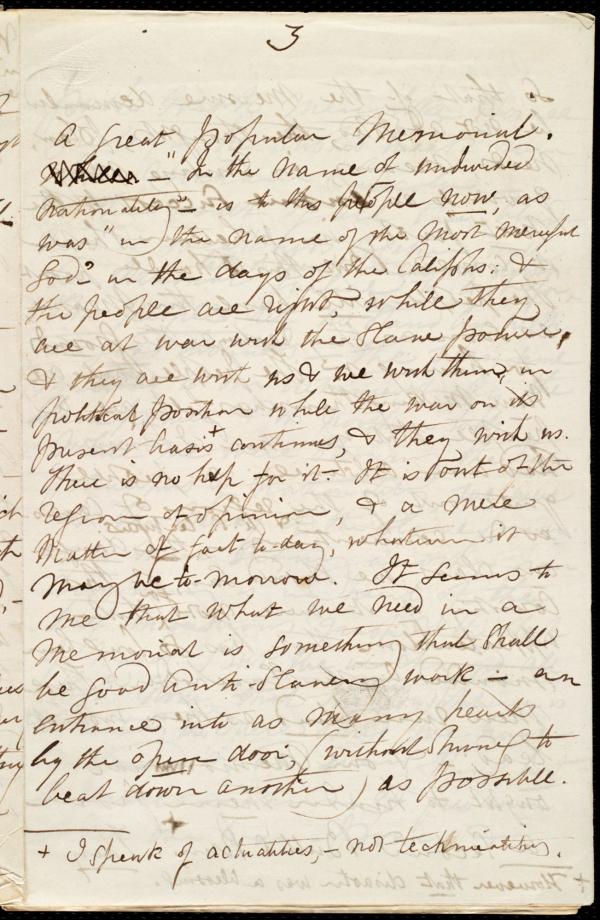 3
A great popular Memorial.
— "In the name of undivided
nationality" — is to this people now, as
was "in the name of the most merciful
God" in the days of the Califphs: &
the people are right, while they
are at war with the Slave power,
& they are with us & we with them, in
political position while the war on its
present basis+ continues, & they with us.
There is no help for it. It is out of the
region of opinion, & a mere
matter of fact to-day, whatever it
may be to-morrow. It seems to
me that what we need in a
Memorial is something that shall
be good Anti-Slavery work — an
entrance into as many hearts
by the open door, (without striving to
beat down another) as possible.
+ I speak of actualities, — not technicalities.
+ However that disaster was a blessing